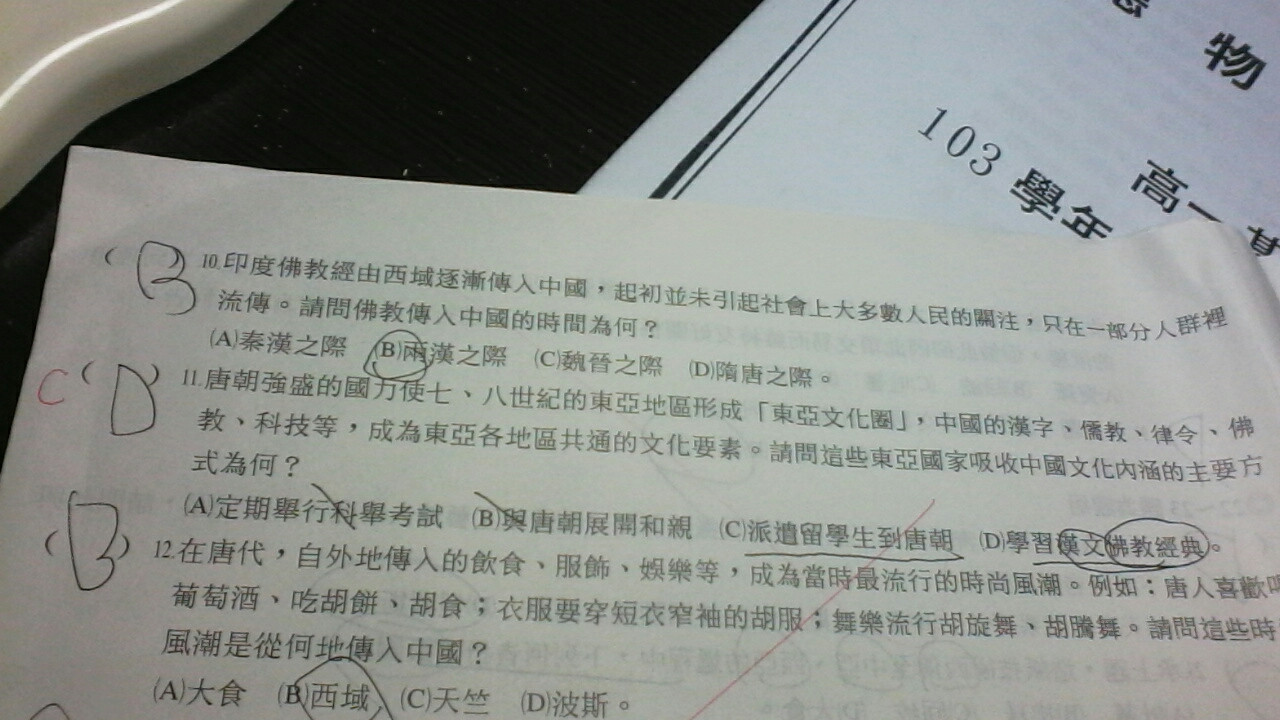 物
103 學年
高一
(B) 10.印度佛教經由西域逐漸傳入中國,起初並未引起社會上大多數人民的關注,只在一部分人群裡
流傳。請問佛教傳入中國的時間為何?
(A)秦漢之際 (B)兩漢之際 (C)魏晉之際 (D)隋唐之際。
C (D) 11.唐朝強盛的國力使七、八世紀的東亞地區形成「東亞文化圈」,中國的漢字、儒教、律令、佛
教、科技等,成為東亞各地區共通的文化要素。請問這些東亞國家吸收中國文化內涵的主要方
式為何?
(A)定期舉行科舉考試 (B)與唐朝展開和親 (C)派遣留學生到唐朝 (D)學習漢文佛教經典。
(B) 12.在唐代,自外地傳入的飲食、服飾、娛樂等,成為當時最流行的時尚風潮。例如:唐人喜歡
葡萄酒、吃胡餅、胡食;衣服要穿短衣窄袖的胡服;舞樂流行胡旋舞、胡騰舞。請問這些時
風潮是從何地傳入中國?
(A)大食 (B)西域 (C)天竺 (D)波斯。